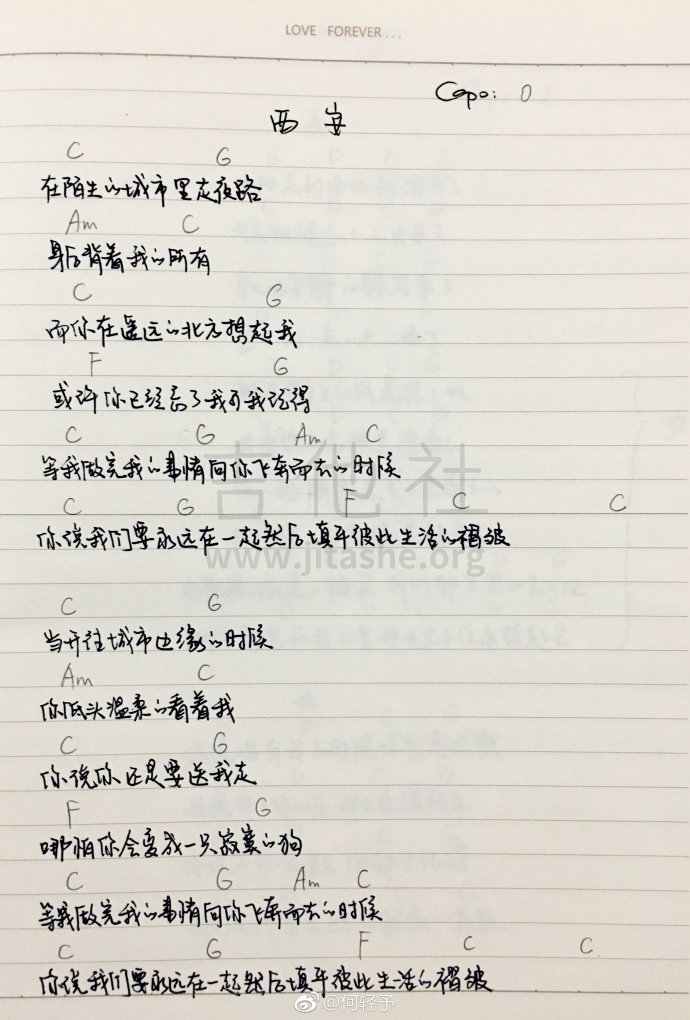 LOVE FOREVER...
Capo: 0
西安
C G
在陌生的城市里走夜路
Am C
身后背着我的所有
C G
而你在遥远的北方想起我
F G
或许你已经忘了我可我记得
C G Am C
等我做完我的事情向你飞奔而去的时候
吉他社
C G F C C
你说我们要永远在一起然后填平彼此生活的褶皱
www.jitashe.org
C G
当开往城市边缘的时候
Am C
你低头温柔的看着我
C G
你说你还是要送我走
F G
哪怕你会变成一只寂寞的狗
C G Am C
等我做完我的事情向你飞奔而去的时候
C G F C C
你说我们要永远在一起然后填平彼此生活的褶皱
@何轻予